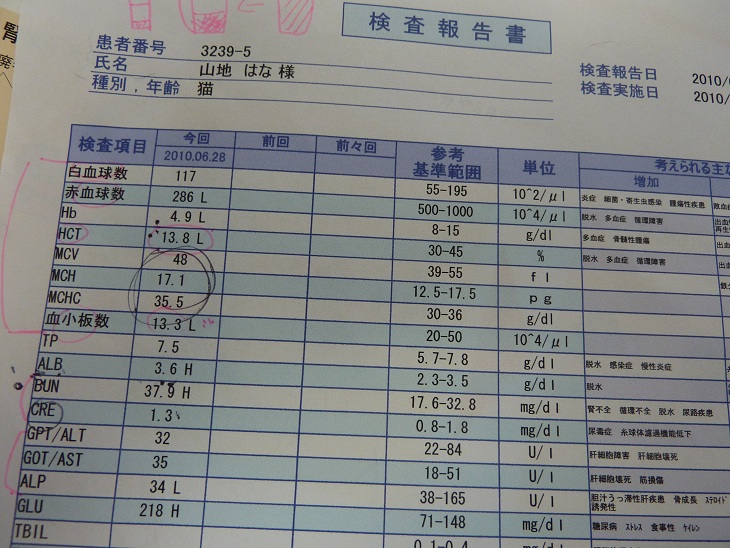 検査報告書
患者番号 3239-5
氏名 山地 はな 様
種別,年齢 猫
検査報告日 2010/
検査実施日 2010/
検査項目 今回 前回 前々回 参考基準範囲 単位 考えられる主な
2010.06.28 増加
白血球数 117 55-195 10^2/μl 炎症 細菌・寄生虫感染 腫瘍性疾患
赤血球数 286 L 500-1000 10^4/μl 脱水 多血症 循環障害
Hb 4.9 L 8-15 g/dl 多血症 骨髄性腫瘍
HCT 13.8 L 30-45 % 脱水 多血症 循環障害
MCV 48 39-55 fl
MCH 17.1 12.5-17.5 pg
MCHC 35.5 30-36 g/dl
血小板数 13.3 L 20-50 10^4/μl
TP 7.5 5.7-7.8 g/dl 脱水 感染症 慢性炎症
ALB 3.6 H 2.3-3.5 g/dl 脱水
BUN 37.9 H 17.6-32.8 mg/dl 腎不全 循環不全 脱水 尿路疾患
CRE 1.3 0.8-1.8 mg/dl 尿毒症 糸球体濾過機能低下
GPT/ALT 32 22-84 U/l 肝細胞障害 肝細胞壊死
GOT/AST 35 18-51 U/l 肝細胞壊死 筋損傷
ALP 34 L 38-165 U/l 胆汁うっ滞性肝疾患 骨成長 ステロイド誘発性
GLU 218 H 71-148 mg/dl 糖尿病 ストレス 食事性 ケイレン
TBIL 0.1-0.4 mg/dl